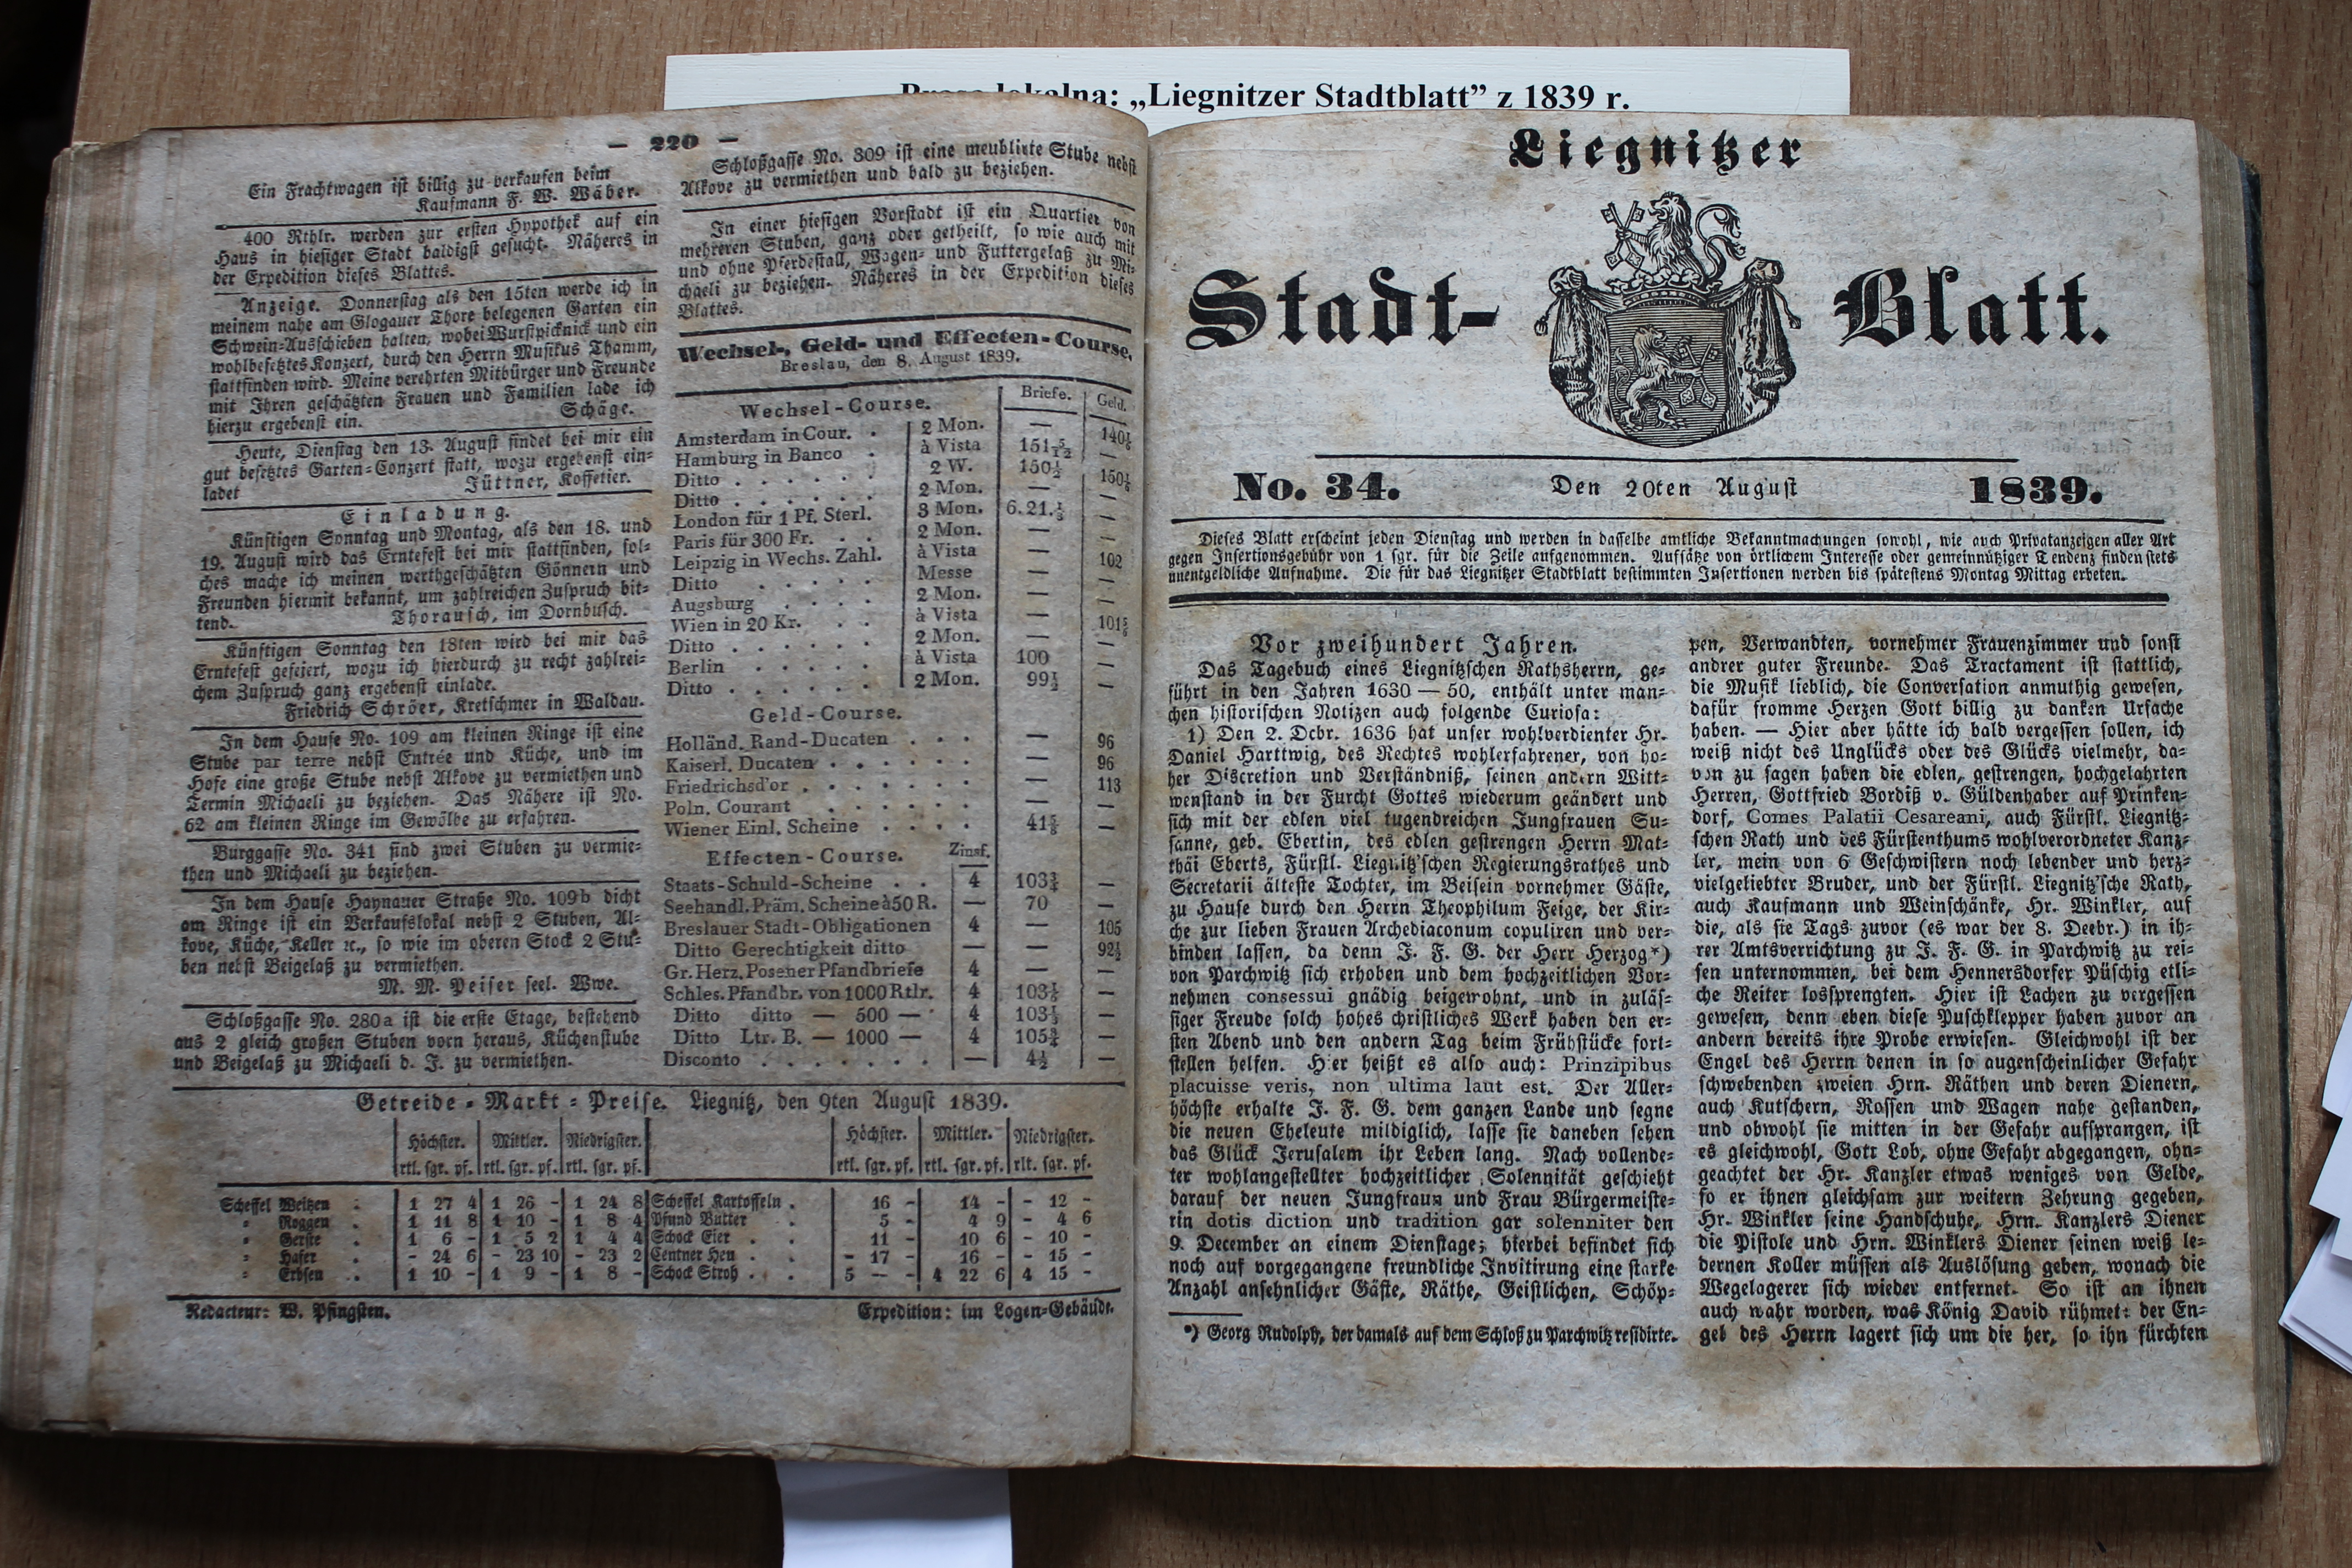 lokalna: „Liegnitzer Stadtblatt” z 1839 r.
— 220 —
Ein Frachtwagen ist billig zu verkaufen beim
Kaufmann F. W. Wäber.
400 Rthlr. werden zur ersten Hypothek auf ein
Haus in hiesiger Stadt baldigst gesucht. Näheres in
der Expedition dieses Blattes.
Anzeige. Donnerstag als den 15ten werde ich in
meinem nahe am Glogauer Thore belegenen Garten ein
Schwein-Ausschieben halten, wobei Wurstpicknick und ein
wohlbesetztes Konzert, durch den Herrn Musikus Thamm,
stattfinden wird. Meine verehrten Mitbürger und Freunde
mit Ihren geschätzten Frauen und Familien lade ich
hierzu ergebenst ein.
Schäge.
Heute, Dienstag den 13. August findet bei mir ein
gut besetztes Garten-Conzert statt, wozu ergebenst ein-
ladet
Jüttner, Koffetier.
Einladung.
Künftigen Sonntag und Montag, als den 18. und
19. August wird das Erntefest bei mir stattfinden, sol-
ches mache ich meinen werthgeschätzten Gönnern und
Freunden hiermit bekannt, um zahlreichen Zuspruch bit-
tend.
Thorausch, im Dornbusch.
Künftigen Sonntag den 18ten wird bei mir das
Erntefest gefeiert, wozu ich hierdurch zu recht zahlrei-
chem Zuspruch ganz ergebenst einlade.
Friedrich Schröer, Kretschmer in Waldau.
In dem Hause No. 109 am kleinen Ringe ist eine
Stube par terre nebst Entrée und Küche, und im
Hofe eine große Stube nebst Alkove zu vermiethen und
Termin Michaeli zu beziehen. Das Nähere ist No.
62 am kleinen Ringe im Gewölbe zu erfahren.
Burggasse No. 341 sind zwei Stuben zu vermie-
then und Michaeli zu beziehen.
In dem Hause Haynauer Straße No. 109b dicht
am Ringe ist ein Verkaufslokal nebst 2 Stuben, Al-
kove, Küche, Keller ꝛc., so wie im oberen Stock 2 Stu-
ben nebst Beigelaß zu vermiethen.
M. M. Peiser seel. Wwe.
Schloßgasse No. 280a ist die erste Etage, bestehend
aus 2 gleich großen Stuben vorn heraus, Küchenstube
und Beigelaß zu Michaeli d. J. zu vermiethen.
Schloßgasse No. 309 ist eine meublirte Stube nebst
Alkove zu vermiethen und bald zu beziehen.
In einer hiesigen Vorstadt ist ein Quartier von
mehreren Stuben, ganz oder getheilt, so wie auch mit
und ohne Pferdestall, Wagen- und Futtergelaß zu Mi-
chaeli zu beziehen. Näheres in der Expedition dieses
Blattes.
Wechsel-, Geld- und Effecten-Course.
Breslau, den 8. August 1839.
Wechsel-Course. Briefe. Geld.
Amsterdam in Cour. . 2 Mon. — 140⅙
Hamburg in Banco . à Vista 151 5/12 —
Ditto . . . . . . 2 W. 150½ —
Ditto . . . . . . 2 Mon. — 150⅙
London für 1 Pf. Sterl. 3 Mon. 6.21.⅓ —
Paris für 300 Fr. . . 2 Mon. — —
Leipzig in Wechs. Zahl. à Vista — 102
Ditto . . . . . Messe — —
Augsburg . . . . 2 Mon. — —
Wien in 20 Kr. . . à Vista — —
Ditto . . . . . . 2 Mon. — 101⅚
Berlin . . . . . à Vista 100 —
Ditto . . . . . . 2 Mon. 99⅓ —
Geld-Course.
Holländ. Rand-Ducaten . . . — 96
Kaiserl. Ducaten . . . . . . — 96
Friedrichsd'or . . . . . . . — 113
Poln. Courant . . . . . . — —
Wiener Einl. Scheine . . . . 41⅚ —
Effecten-Course. Zinsf.
Staats-Schuld-Scheine . . 4 103¾ —
Seehandl. Präm. Scheine à 50 R. — 70 —
Breslauer Stadt-Obligationen 4 — 105
Ditto Gerechtigkeit ditto — — 92½
Gr. Herz. Posener Pfandbriefe 4 — —
Schles. Pfandbr. von 1000 Rtlr. 4 103⅓ —
Ditto ditto — 500 — 4 103⅓ —
Ditto Ltr. B. — 1000 — 4 105¾ —
Disconto . . . . . . . — 4½ —
Getreide-Markt-Preise. Liegnitz, den 9ten August 1839.
Höchster. Mittler. Niedrigster. Höchster. Mittler. Niedrigster.
rtl. sgr. pf. rtl. sgr. pf. rtl. sgr. pf. rtl. sgr. pf. rtl. sgr. pf. rlt. sgr. pf.
Scheffel Weitzen . 1 27 4 1 26 - 1 24 8 Scheffel Kartoffeln . 16 - 14 - - 12 -
= Roggen . 1 11 8 1 10 - 1 8 4 Pfund Butter . 5 - 4 9 - 4 6
= Gerste . 1 6 - 1 5 2 1 4 4 Schock Eier . . 11 - 10 6 - 10 -
= Hafer . - 24 6 - 23 10 - 23 2 Centner Heu . . - 17 - 16 - - 15 -
= Erbsen . 1 10 - 1 9 - 1 8 - Schock Stroh . . 5 — - 4 22 6 4 15 -
Redacteur: W. Pfingsten.
Expedition: im Logen-Gebäude.
Liegnitzer
Stadt-Blatt.
No. 34. Den 20ten August 1839.
Dieses Blatt erscheint jeden Dienstag und werden in dasselbe amtliche Bekanntmachungen sowohl, wie auch Privatanzeigen aller Art
gegen Insertionsgebühr von 1 sgr. für die Zeile aufgenommen. Aufsätze von örtlichem Interesse oder gemeinnütziger Tendenz finden stets
unentgeldliche Aufnahme. Die für das Liegnitzer Stadtblatt bestimmten Insertionen werden bis spätestens Montag Mittag erbeten.
Vor zweihundert Jahren.
Das Tagebuch eines Liegnitzschen Rathsherrn, ge-
führt in den Jahren 1630 — 50, enthält unter man-
chen historischen Notizen auch folgende Curiosa:
1) Den 2. Dcbr. 1636 hat unser wohlverdienter Hr.
Daniel Harttwig, des Rechtes wohlerfahrener, von ho-
her Discretion und Verständniß, seinen andern Witt-
wenstand in der Furcht Gottes wiederum geändert und
sich mit der edlen viel tugendreichen Jungfrauen Su-
sanne, geb. Ebertin, des edlen gestrengen Herrn Mat-
thäi Eberts, Fürstl. Liegnitz'schen Regierungsrathes und
Secretarii älteste Tochter, im Beisein vornehmer Gäste,
zu Hause durch den Herrn Theophilum Feige, der Kir-
che zur lieben Frauen Archediaconum copuliren und ver-
binden lassen, da denn J. F. G. der Herr Herzog*)
von Parchwitz sich erhoben und dem hochzeitlichen Vor-
nehmen consessui gnädig beigewohnt, und in zuläs-
siger Freude solch hohes christliches Werk haben den er-
sten Abend und den andern Tag beim Frühstücke fort-
stellen helfen. Hier heißt es also auch: Prinzipibus
placuisse veris, non ultima laut est. Der Aller-
höchste erhalte J. F. G. dem ganzen Lande und segne
die neuen Eheleute mildiglich, lasse sie daneben sehen
das Glück Jerusalem ihr Leben lang. Nach vollende-
ter wohlangestellter hochzeitlicher Solennität geschieht
darauf der neuen Jungfraun und Frau Bürgermeiste-
rin dotis diction und tradition gar solenniter den
9. December an einem Dienstage; hierbei befindet sich
noch auf vorgegangene freundliche Invitirung eine starke
Anzahl ansehnlicher Gäste, Räthe, Geistlichen, Schöp-
*) Georg Rudolph, der damals auf dem Schloß zu Parchwitz residirte.
pen, Verwandten, vornehmer Frauenzimmer und sonst
andrer guter Freunde. Das Tractament ist stattlich,
die Musik lieblich, die Conversation anmuthig gewesen,
dafür fromme Herzen Gott billig zu danken Ursache
haben. — Hier aber hätte ich bald vergessen sollen, ich
weiß nicht des Unglücks oder des Glücks vielmehr, da-
von zu sagen haben die edlen, gestrengen, hochgelahrten
Herren, Gottfried Bordiß v. Güldenhaber auf Prinken-
dorf, Comes Palatii Cesareani, auch Fürstl. Liegnitz-
schen Rath und des Fürstenthums wohlverordneter Kanz-
ler, mein von 6 Geschwistern noch lebender und herz-
vielgeliebter Bruder, und der Fürstl. Liegnitz'sche Rath,
auch Kaufmann und Weinschänke, Hr. Winkler, auf
die, als sie Tags zuvor (es war der 8. Decbr.) in ih-
rer Amtsverrichtung zu J. F. G. in Parchwitz zu rei-
sen unternommen, bei dem Hennersdorfer Püschig etli-
che Reiter lossprengten. Hier ist Lachen zu vergessen
gewesen, denn eben diese Puschklepper haben zuvor an
andern bereits ihre Probe erwiesen. Gleichwohl ist der
Engel des Herrn denen in so augenscheinlicher Gefahr
schwebenden zweien Hrn. Räthen und deren Dienern,
auch Kutschern, Rossen und Wagen nahe gestanden,
und obwohl sie mitten in der Gefahr aufsprangen, ist
es gleichwohl, Gott Lob, ohne Gefahr abgegangen, ohn-
geachtet der Hr. Kanzler etwas weniges von Gelde,
so er ihnen gleichsam zur weitern Zehrung gegeben,
Hr. Winkler seine Handschuhe, Hrn. Kanzlers Diener
die Pistole und Hrn. Winklers Diener seinen weiß le-
dernen Koller müssen als Auslösung geben, wonach die
Wegelagerer sich wieder entfernet. So ist an ihnen
auch wahr worden, was König David rühmet: der En-
gel des Herrn lagert sich um die her, so ihn fürchten